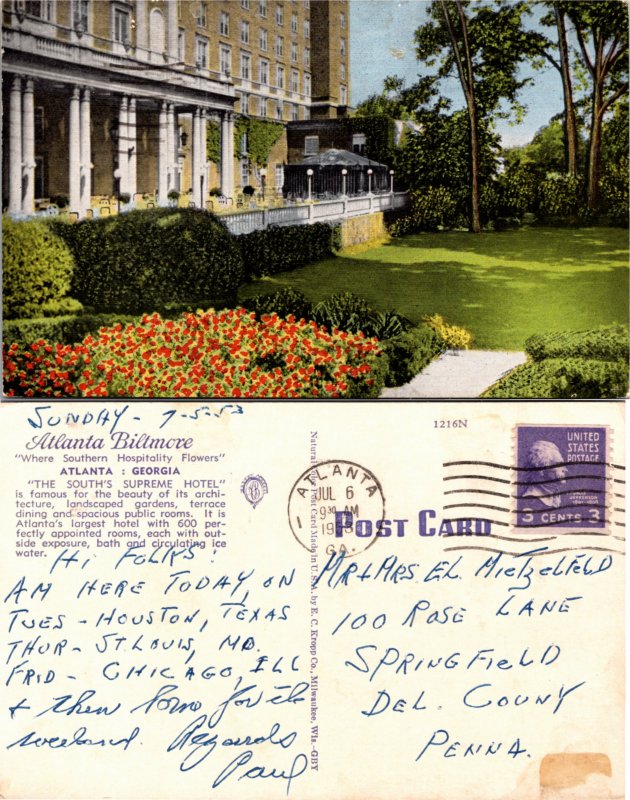 SUNDAY - 7-5-53
Atlanta Biltmore
"Where Southern Hospitality Flowers"
ATLANTA : GEORGIA
"THE SOUTH'S SUPREME HOTEL"
is famous for the beauty of its archi-
tecture, landscaped gardens, terrace
dining and spacious public rooms. It is
Atlanta's largest hotel with 600 per-
fectly appointed rooms, each with out-
side exposure, bath and circulating ice
water.
HI FOLKS!
AM HERE TODAY, ON
TUES - HOUSTON, TEXAS
THUR - ST. LOUIS, MO.
FRID - CHICAGO, ILL
& then home for the
weekend. Regards
Paul
Post Card Made in U.S.A. by E. C. Kropp Co., Milwaukee, Wis.-GBY
1216N
ATLANTA
JUL 6
9 30 AM
1953
GA.
POST CARD
UNITED
STATES
POSTAGE
3 CENTS 3
MR & MRS. E.L. MIETZELFELD
100 ROSE LANE
SPRINGFIELD
DEL. COUNY
PENNA.